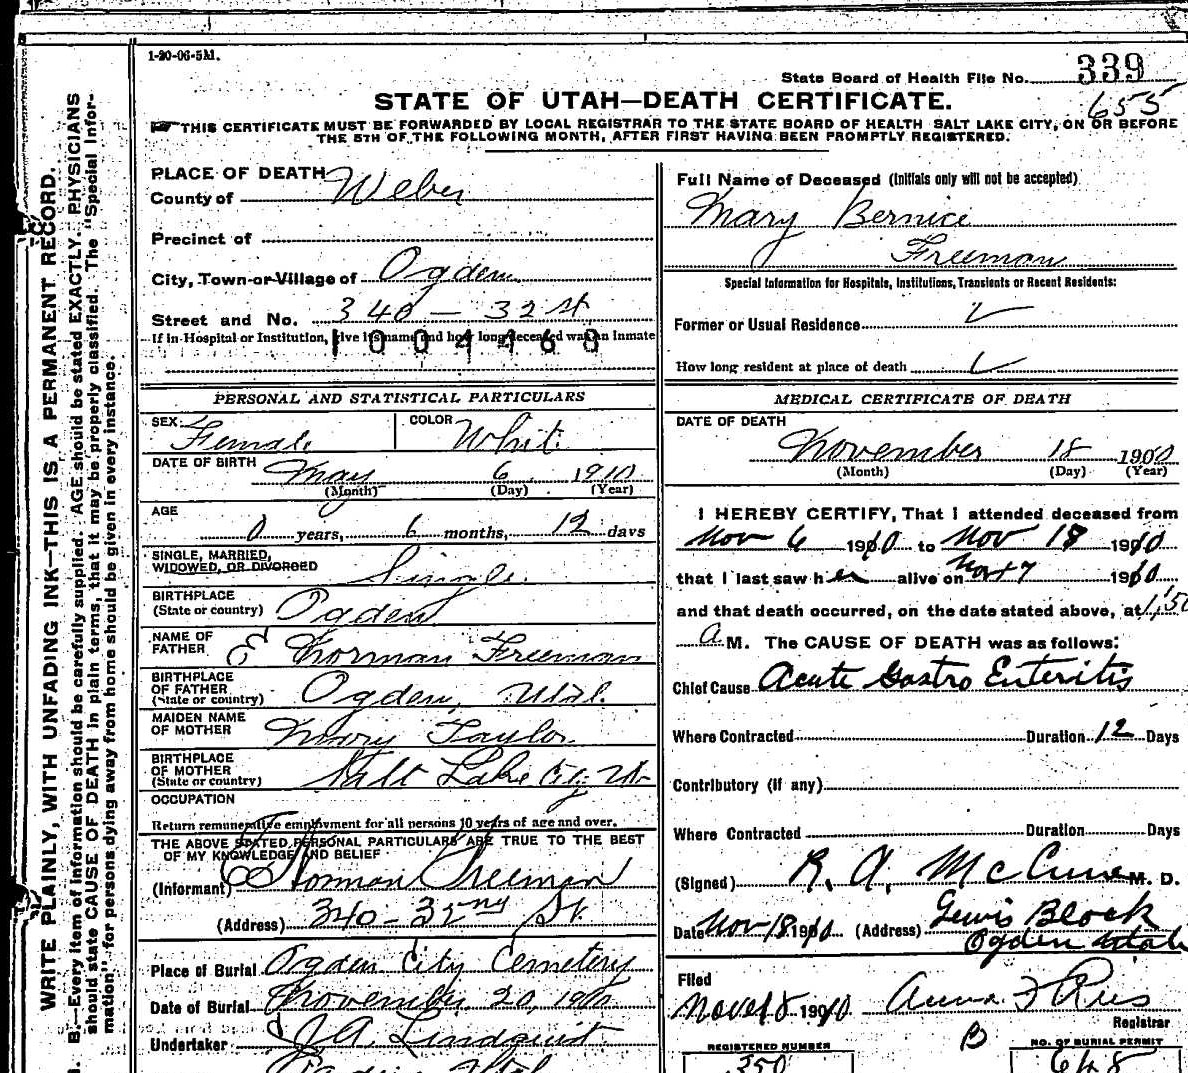 1-20-06-5M.
State Board of Health File No. 339
655
STATE OF UTAH—DEATH CERTIFICATE.
THIS CERTIFICATE MUST BE FORWARDED BY LOCAL REGISTRAR TO THE STATE BOARD OF HEALTH SALT LAKE CITY, ON OR BEFORE
THE 5TH OF THE FOLLOWING MONTH, AFTER FIRST HAVING BEEN PROMPTLY REGISTERED.
WRITE PLAINLY, WITH UNFADING INK—THIS IS A PERMANENT RECORD.
B.—Every item of information should be carefully supplied. AGE should be stated EXACTLY. PHYSICIANS
should state CAUSE OF DEATH in plain terms, that it may be properly classified. The "Special Infor-
mation" for persons dying away from home should be given in every instance.
PLACE OF DEATH
County of Weber
Precinct of
City, Town or Village of Ogden
Street and No. 340 - 32 st
If in Hospital or Institution, give its name and how long deceased was an inmate
1004468
PERSONAL AND STATISTICAL PARTICULARS
SEX Female COLOR White
DATE OF BIRTH May 6 1910
(Month) (Day) (Year)
AGE
0 years, 6 months, 12 days
SINGLE, MARRIED,
WIDOWED, OR DIVORCED Single
BIRTHPLACE
(State or country) Ogden
NAME OF
FATHER E Norman Freeman
BIRTHPLACE
OF FATHER
(State or country) Ogden, Utah
MAIDEN NAME
OF MOTHER Mary Taylor
BIRTHPLACE
OF MOTHER
(State or country) Salt Lake City Ut
OCCUPATION
Return remunerative employment for all persons 10 years of age and over.
THE ABOVE STATED PERSONAL PARTICULARS ARE TRUE TO THE BEST
OF MY KNOWLEDGE AND BELIEF
(Informant) E Norman Freeman
(Address) 340 - 32nd St.
Place of Burial Ogden City Cemetery
Date of Burial November 20, 1910
Undertaker J.A. Lindquist
Full Name of Deceased (Initials only will not be accepted)
Mary Bernice
Freeman
Special Information for Hospitals, Institutions, Transients or Recent Residents:
Former or Usual Residence
How long resident at place of death
MEDICAL CERTIFICATE OF DEATH
DATE OF DEATH
November 18 1910
(Month) (Day) (Year)
I HEREBY CERTIFY, That I attended deceased from
Nov 6 1910 to Nov 18 1910
that I last saw her alive on Nov 17 1910
and that death occurred, on the date stated above, at 1,50
a M. The CAUSE OF DEATH was as follows:
Chief Cause Acute Gastro Enteritis
Where Contracted Duration 12 Days
Contributory (if any)
Where Contracted Duration Days
(Signed) R. A. McCune M. D.
Date Nov 18 1910 (Address) Lewis Block
Ogden Utah
Filed
1910 Anna F Ries
Registrar
B
REGISTERED NUMBER
350
NO. OF BURIAL PERMIT
648